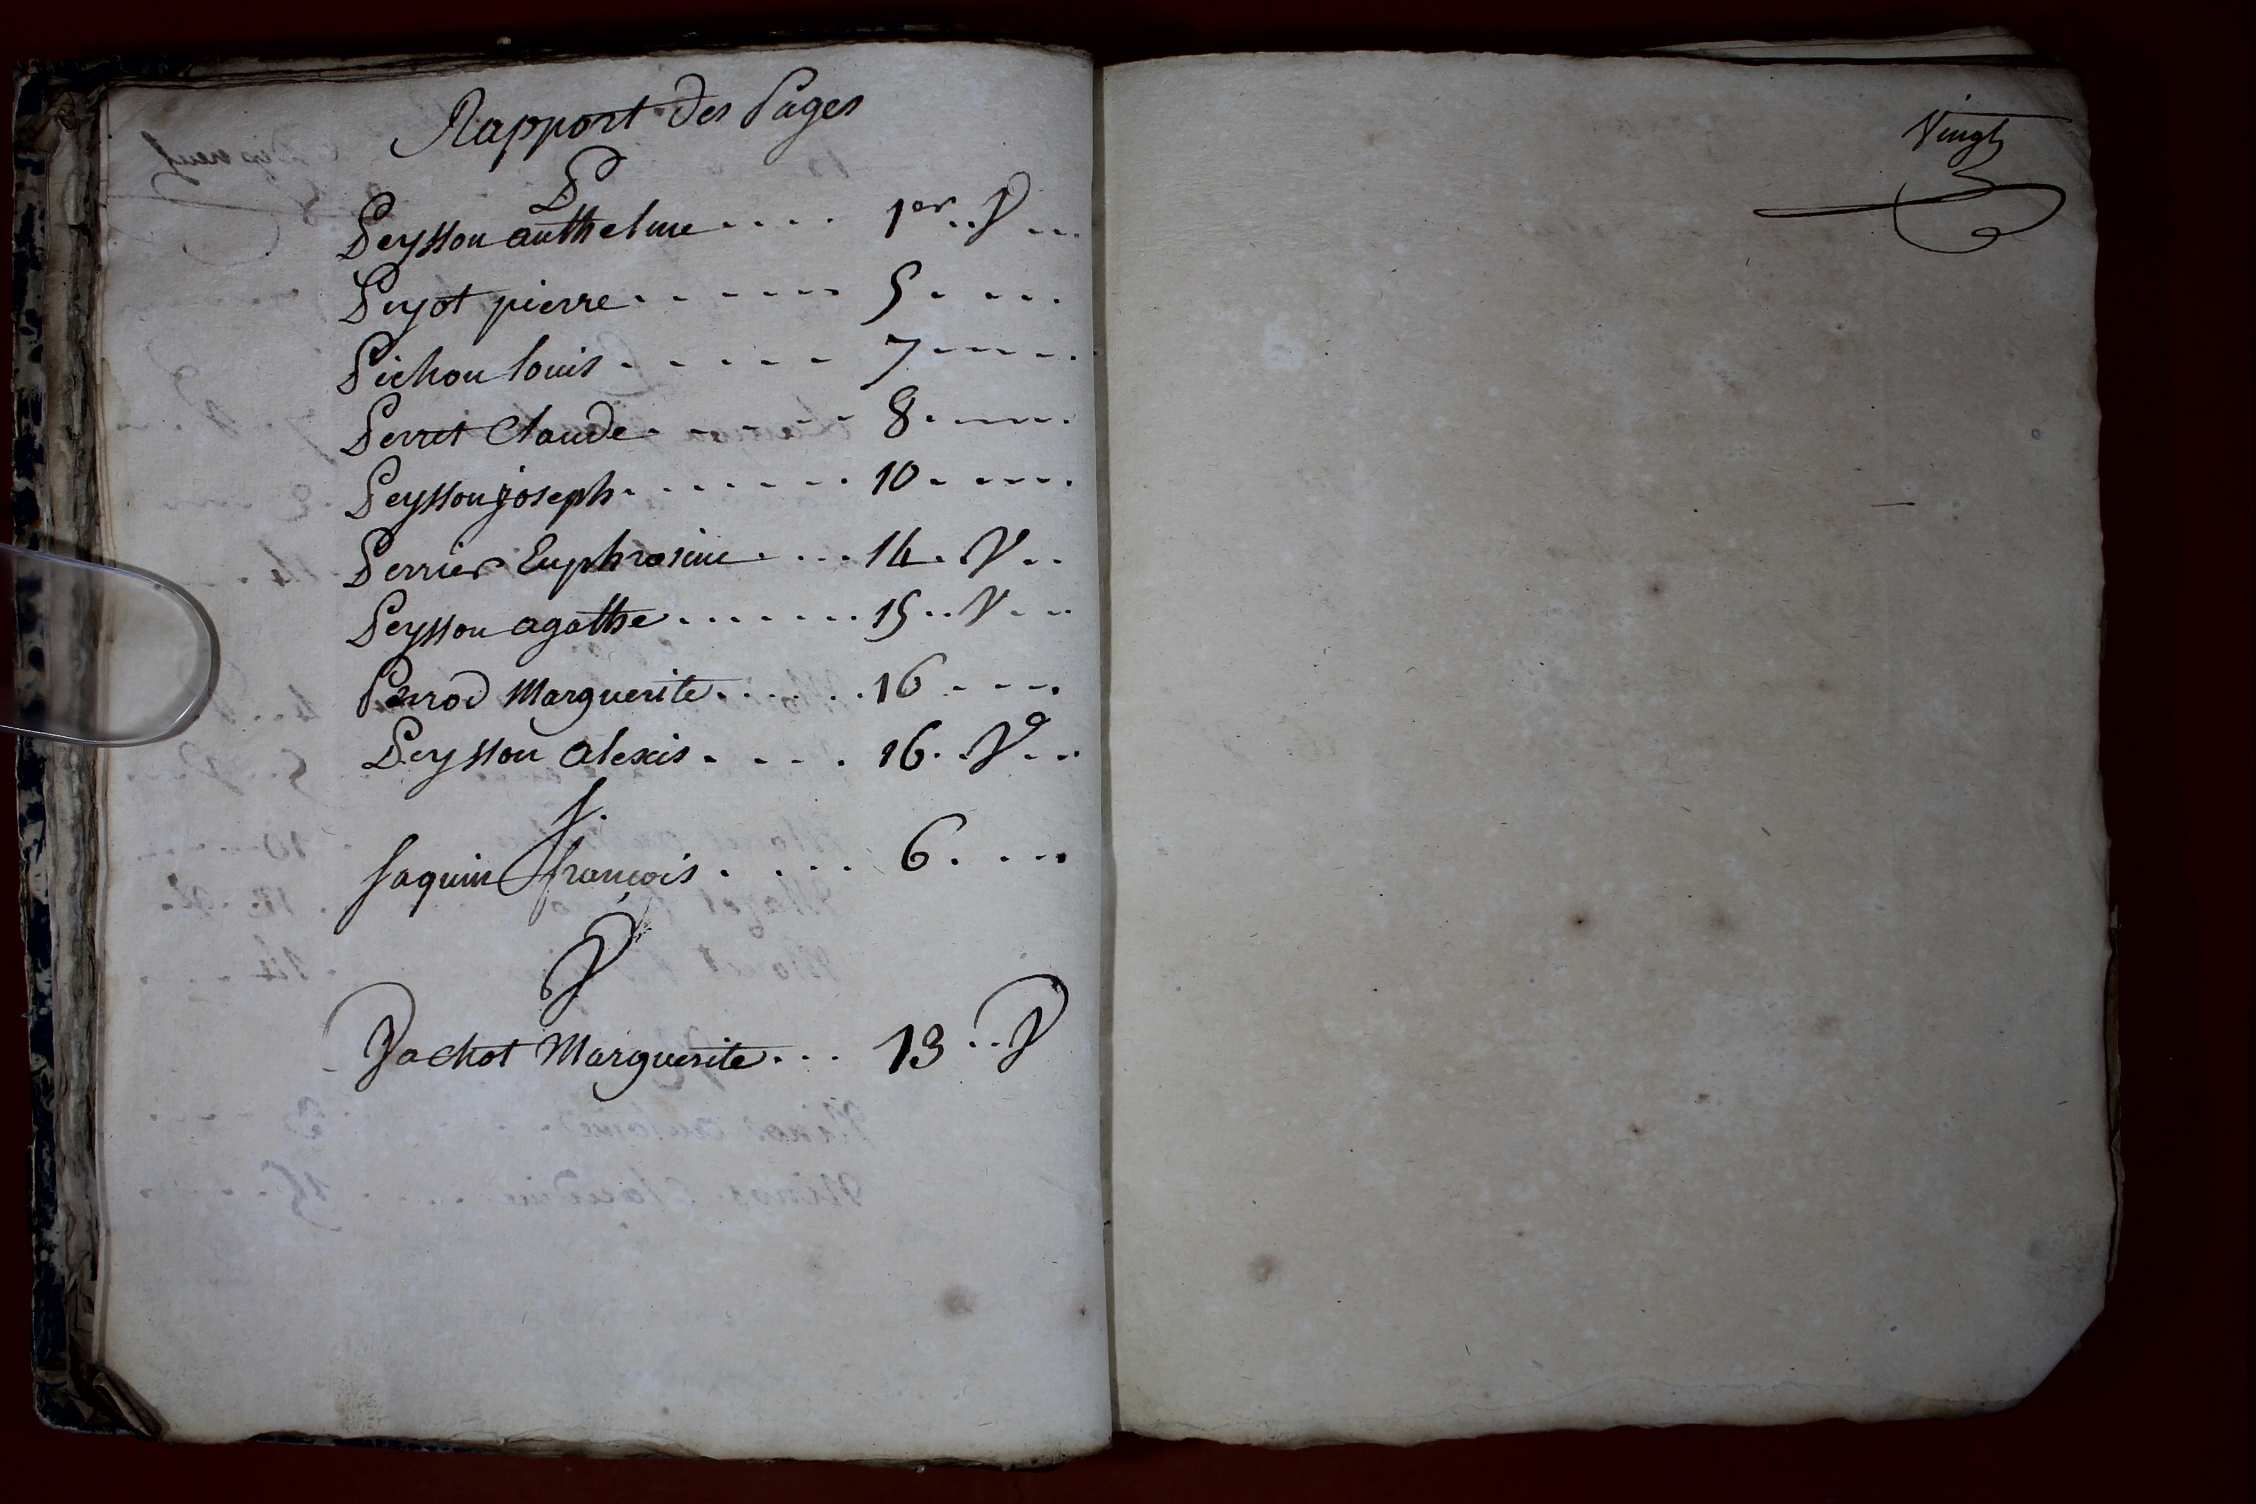 Rapport des Pages
P
Peysson anthelme .... 1er .. V ...
Peyot pierre . . . . . . 5 . ...
Pichon louis . . . . . . 7 . . . . .
Perret Claude . . . . . . 8 . ....
Peysson joseph . . . . . . . . 10 . ....
Perrier Euphrosine . ... 14 . V ..
Peysson agathe . . . . . . . 15 .. V ...
Perrod Marguerite . . . . . . 16 . . . .
Peysson alexis . . . . 16 . . Vo . .
S.
Saquin françois . . . . . 6 . . . .
V
Vachot Marguerite . . . 13 .. V
Vingt